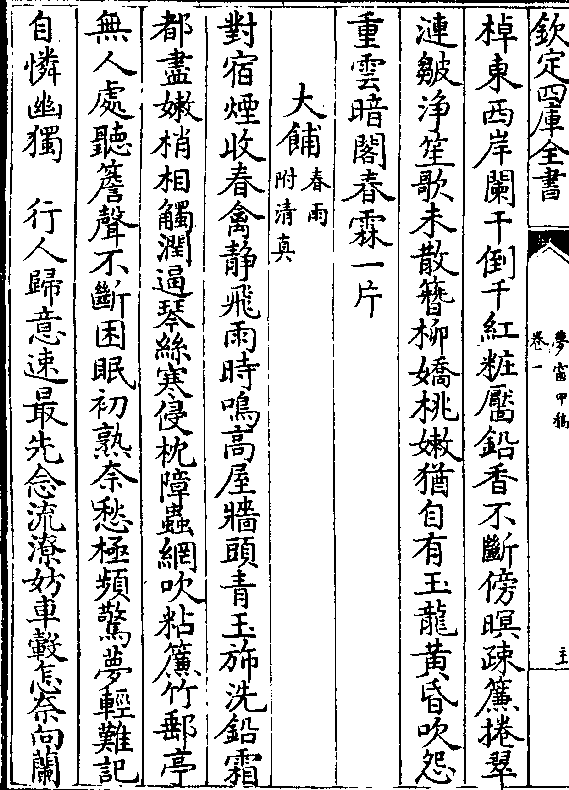 欽定四庫全書
夢窗甲稿
卷一
主
棹東西岸闌干倒千紅粧靨鉛香不斷傍暝疎簾捲翠
漣皺淨笙歌未散簪柳嬌桃嫩猶自有玉龍黃昏吹怨
重雲暗閣春霖一片
大餔春雨
附清真
對宿煙收春禽静飛雨時鳴高屋牆頭青玉斾洗鉛霜
都盡嫩梢相觸潤逼琴絲寒侵枕障蟲網吹粘簾竹郵亭
無人處聽簷聲不斷困眠初熟奈愁極頻驚夢輕難記
自憐幽獨　行人歸意速最先念流潦妨車轂怎奈向蘭